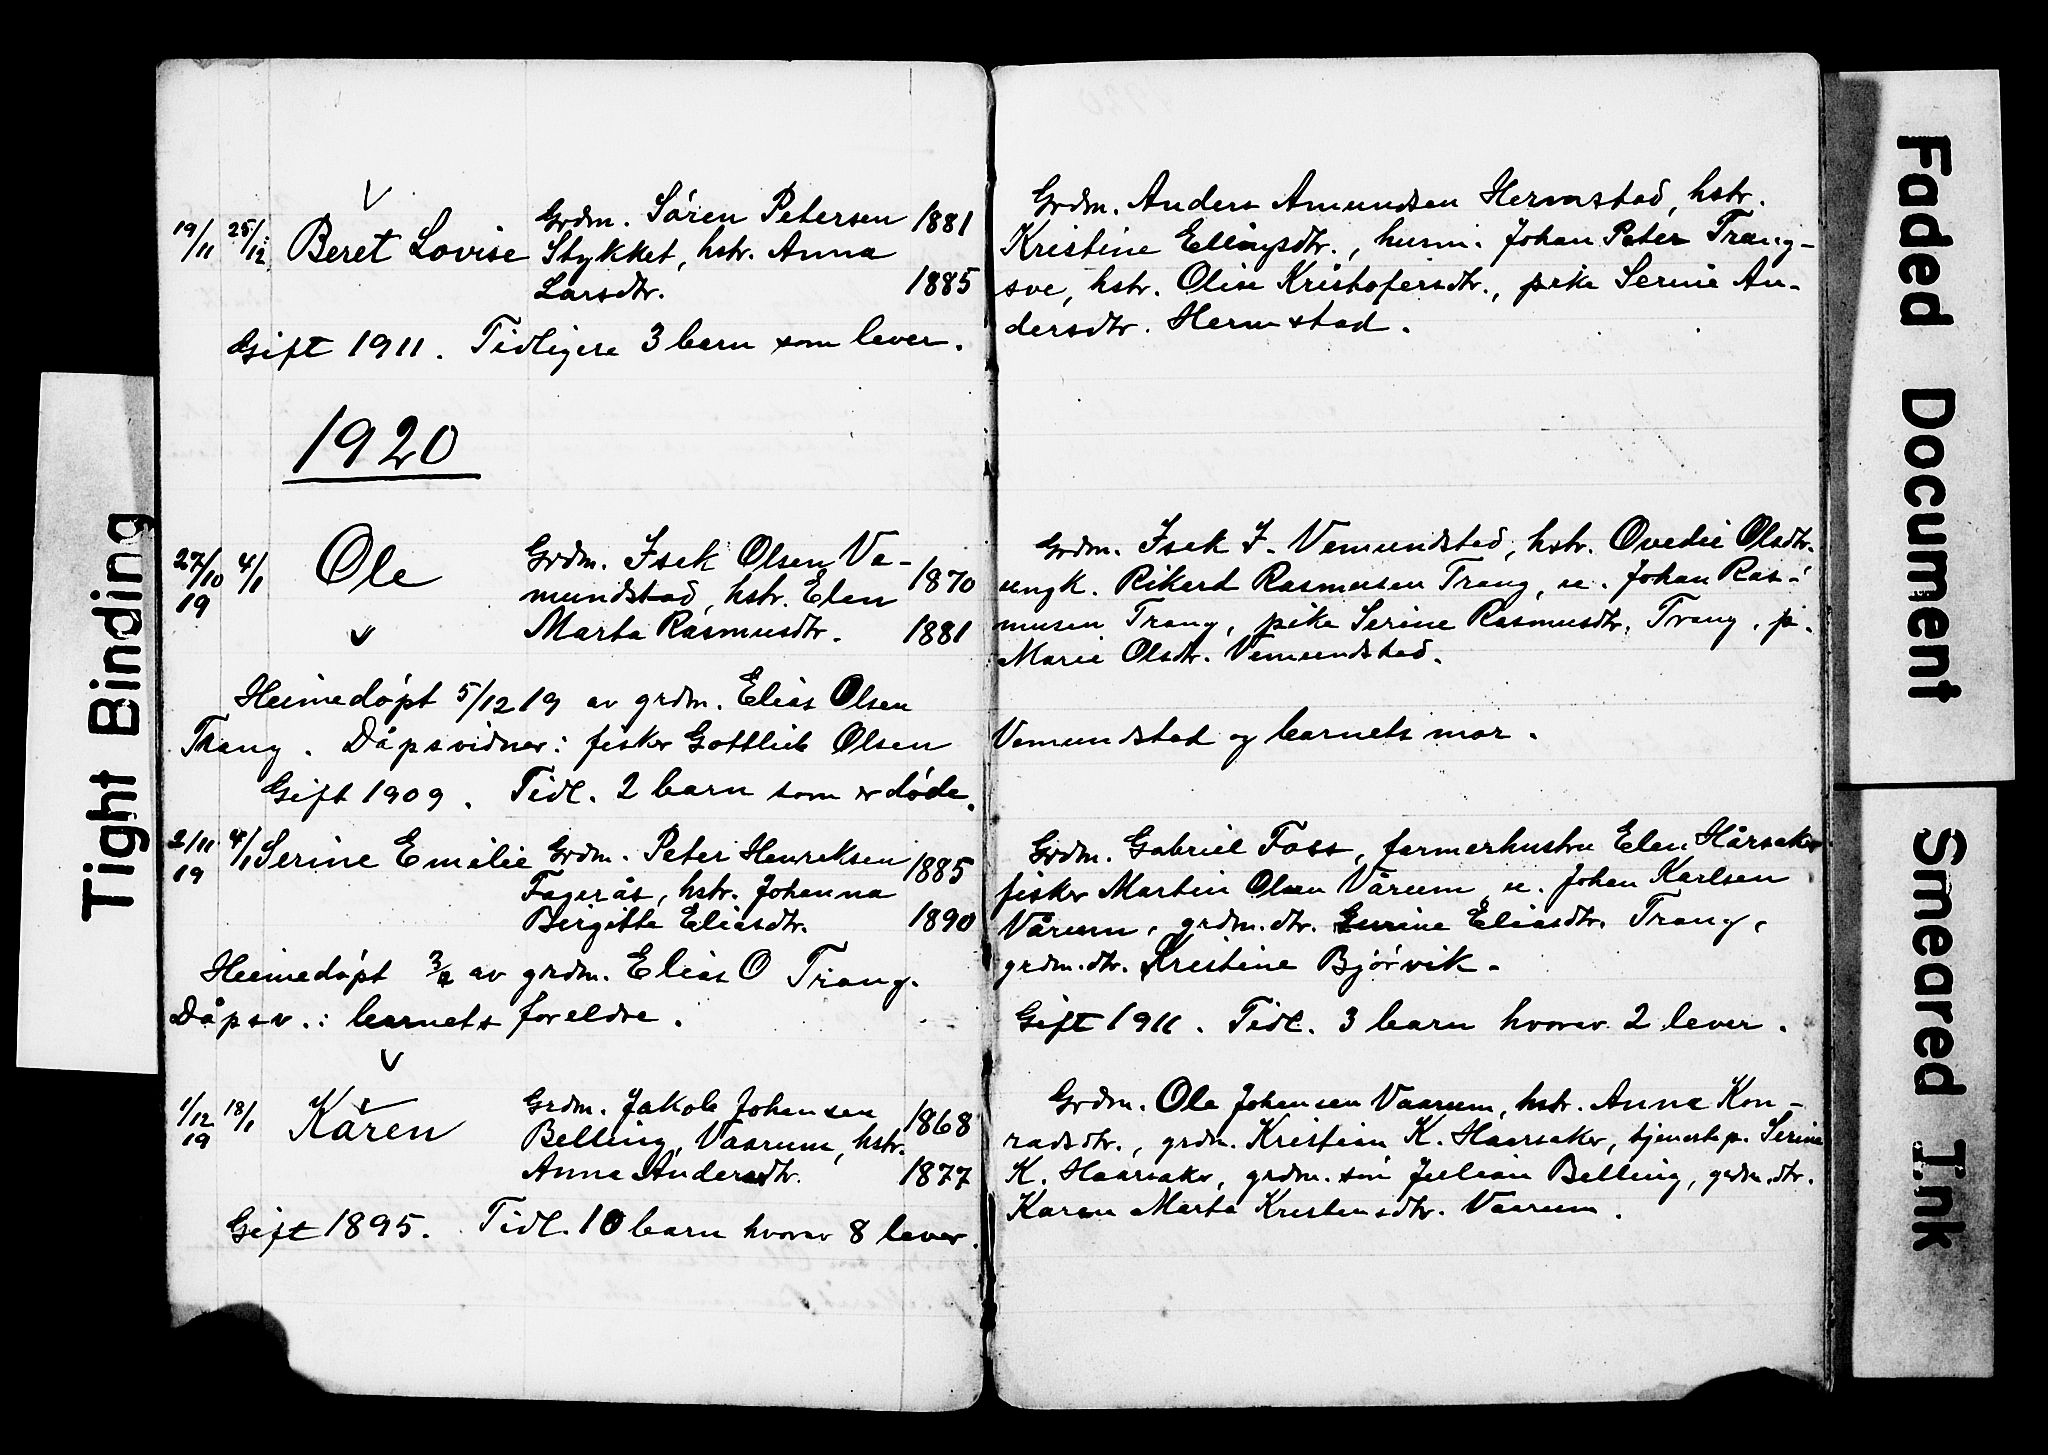 19/11 25/12 Beret Lovise Grdm. Sören Petersen 1881
Stykket, hstr. Anna
Larsdtr. 1885
Gift 1911. Tidligere 3 barn som lever.
Grdm. Anders Amundsen Hermstad, hstr.
Kristine Ellingsdtr., husm. Johan Peter Trang-
sve, hstr. Olise Kristofersdtr., pike Serine An-
dersdtr. Hermstad.
1920
27/10 19 4/1 Ole Grdm. Isek Olsen Ve-
mundstad, hstr. Elen 1870
Marta Rasmusdtr. 1881
Grdm. Isek I. Vemundstad, hstr. Ovedie Olsdtr.
ungk. Rikard Rasmusen Trang, u. Johan Ras-
musen Trang, pike Serine Rasmusdtr. Trang, p.
Marie Olsdtr. Vemundstad.
Heimedöpt 5/12 19 av grdm. Elias Olsen
Trang. Dåpsvidner: fisker Gottlieb Olsen
Vemundstad og barnets mor.
Gift 1909. Tidl. 2 barn som er döde.
2/11 19 4/1 Serine Emelie Grdm. Peter Henriksen 1885
Fagerås, hstr. Johanna
Bergitte Eliasdtr. 1890
Grdm. Gabriel Foss, farmerhustru Elen Hårsaker
fisker Martin Olsen Vårum u. Johan Karlsen
Vårum, grdm.dtr. Eliasdtr. Trang,
grdm.dtr. Kristine Bjørvik.
Heimedöpt av grdm. Elias O Trang.
Dåpsv.: barnets foreldre.
Gift 1911. Tidl. 3 barn hvorav 2 lever.
1/12 19 18/1 Karen Grdm. Jakob Johansen 1868
Belling, Vaarum, hstr.
Anna Andersdtr. 1877
Grdm. Ole Johansen Vaarum, hstr. Anna Kon-
radsdtr., grdm. Kristian K. Haarsaker, tjenestep. Serine
K. Haarsaker, grdm. sön Julian Belling, grdm.dtr.
Karen Marta Kristensdtr. Vaarum.
Gift 1895. Tidl. 10 barn hvorav 8 lever.
Tight Binding
Faded Document
Smeared Ink